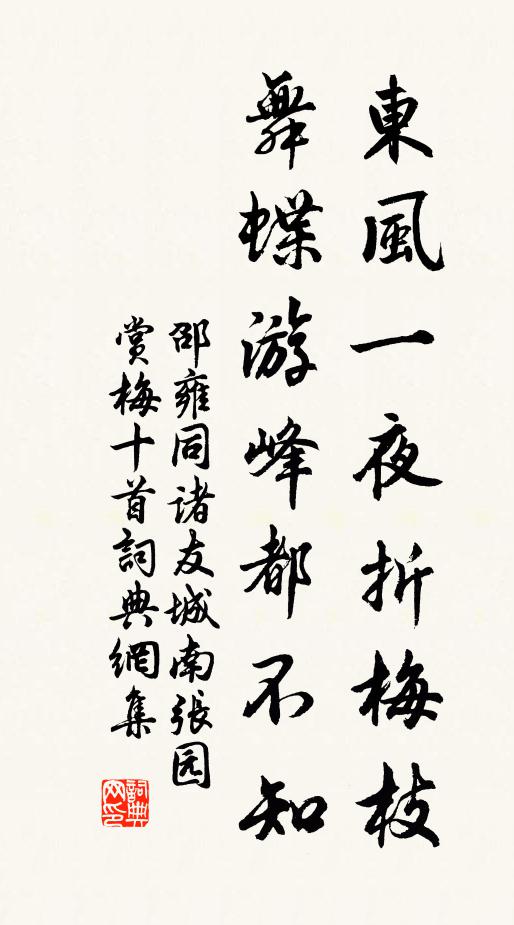 東風一夜折梅枝
舞蝶游峰都不知
邵雍同诸友城南張园
賞梅十首詞典網集
詞典网印